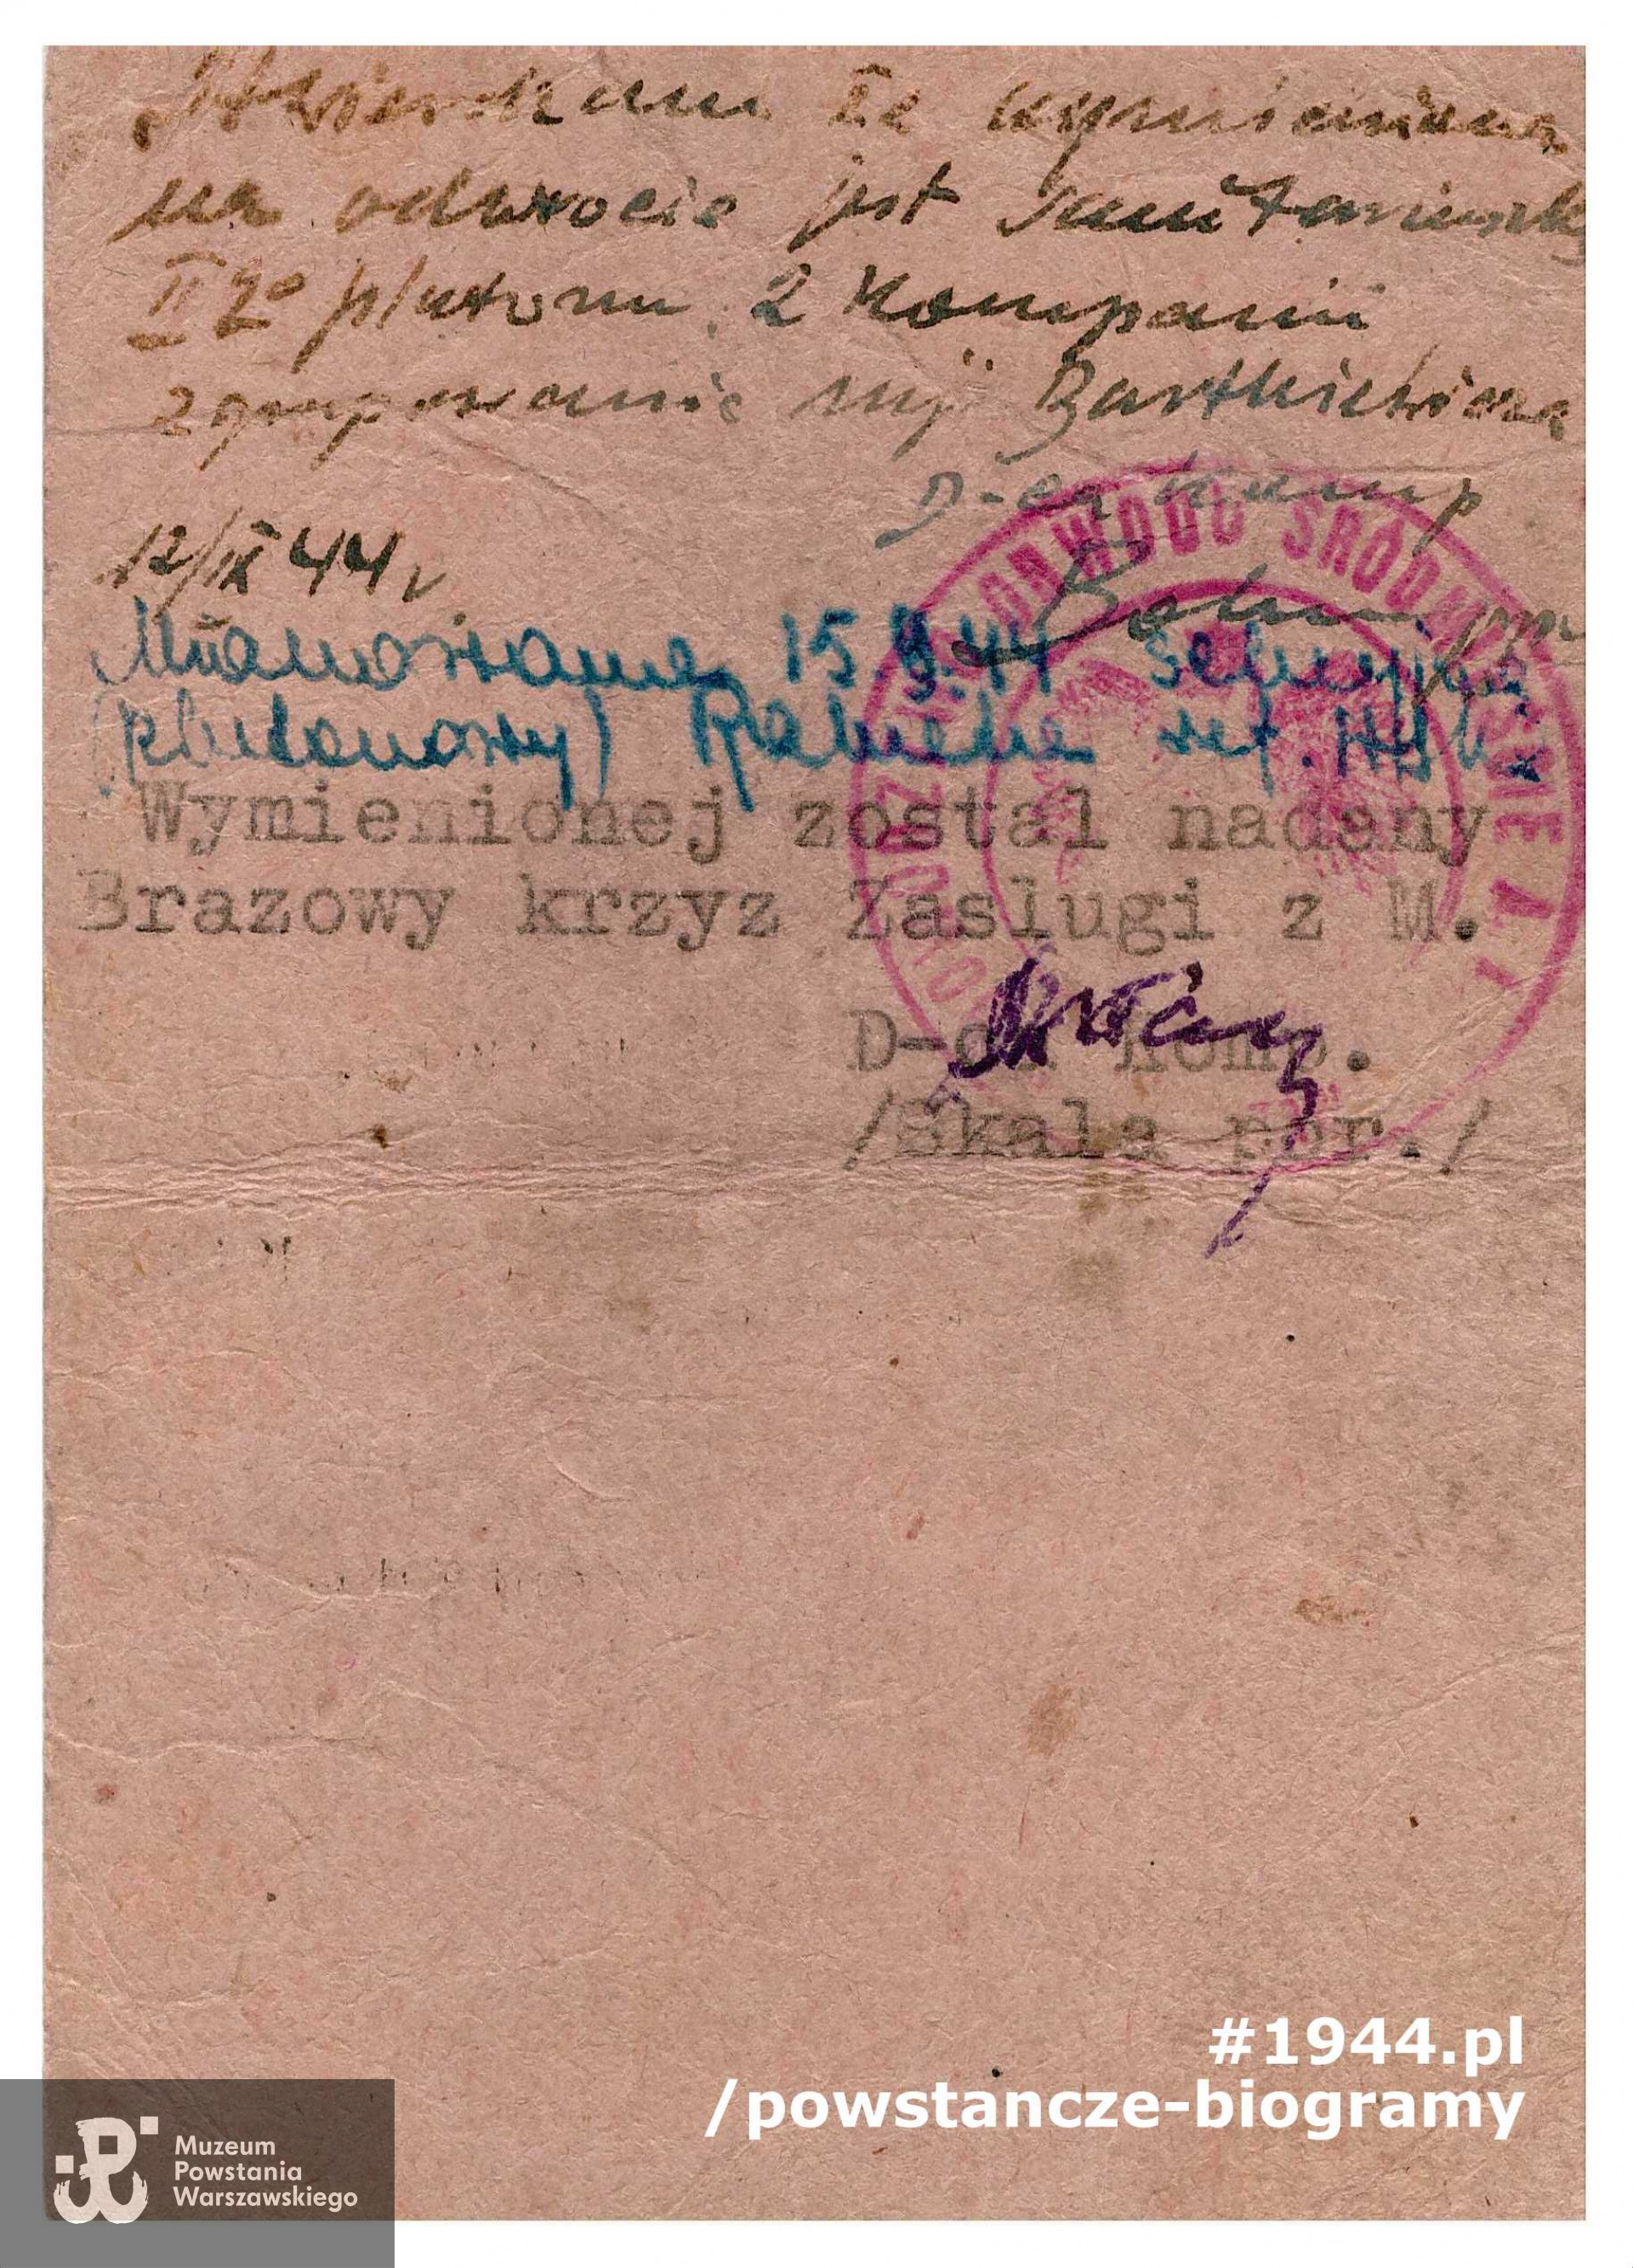 Stwierdzam że wymieniona
na odwrocie jest sanitariuszką
II go plutonu 2 Kompanii
zgrupowanie mjr Bartkiewicza
D-ca Komp
12/IX 44 r
Mianowana 15 44 sekcyjną
(plutonowy) ref. WSK
Wymienionej zostal nadany
Brazowy krzyz Zaslugi z M.
D-ca Komp.
/Skala por./
OBWODU ŚRÓDMIEŚCIE A.K.
#1944.pl
/powstancze-biogramy
Muzeum
Powstania
Warszawskiego